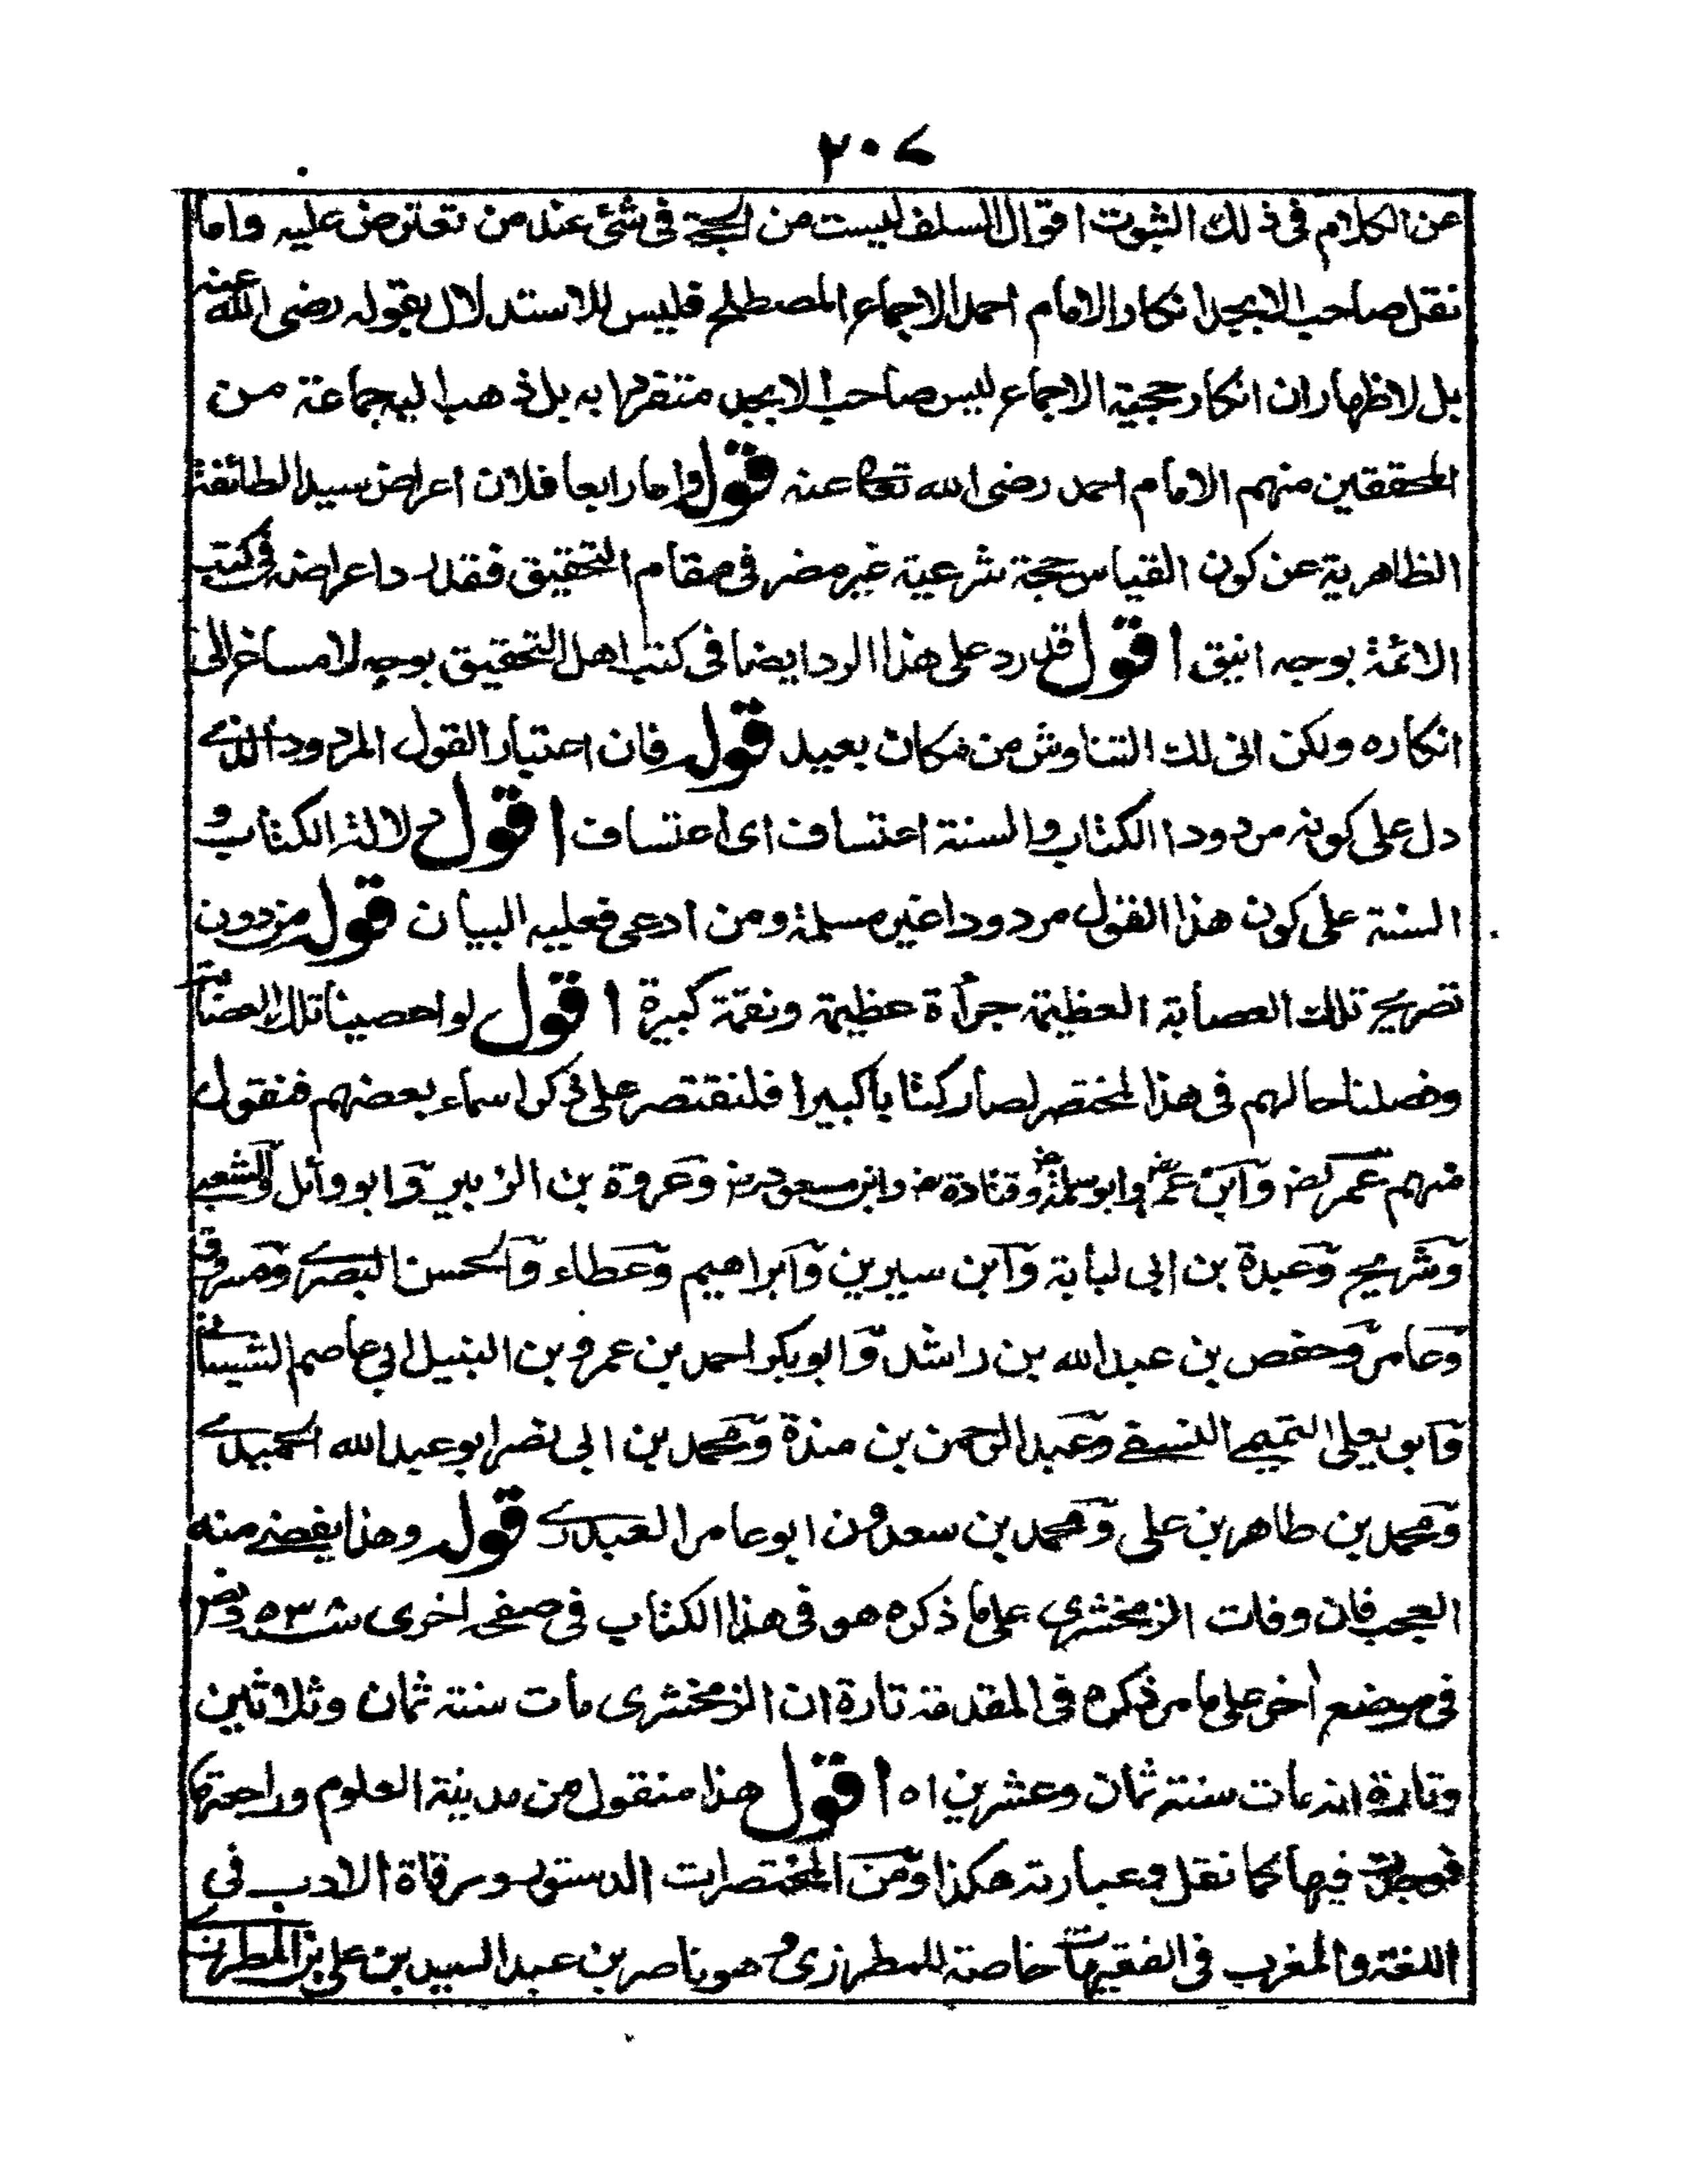 ٢٠٧
عن الكلام فى ذلك الثبوت اقوال السلف ليست من الحجج فى شئ عند من تعترض عليه واما
نقل صاحب الابجد انكار الامام احمد الاجماع المصطلح فليس للاستدلال بقوله رضى الله عنه
بل لاظهار ان انكار حجية الاجماع ليس صاحب الابجد متفردا به بل ذهب اليه جماعة من
المحققين منهم الامام احمد رضى الله تعالى عنه قوله واما رابعا فلان اعراض سيد الطائفة
الظاهرية عن كون القياس حجة شرعية غير مضر فى مقام التحقيق فقد رد اعراضه فى كتب
الائمة بوجه انيق اقول قد رد على هذا الرد ايضا فى كتب اهل التحقيق بوجه لا مساغ الى
انكاره ولكن انى لك التناوش من مكان بعيد قوله فان اعتبار القول المردود الذى
دل على كونه مردودا الكتاب والسنة اعتساف اى اعتساف اقول دلالة الكتاب و
السنة على كون هذا القول مردودا غير مسلمة ومن ادعى فعليه البيان قوله من دون
تصريح تلك العصابة العظيمة جرأة عظيمة ونقمة كبيرة اقول لو احصينا تلك العصابة
وفصلنا حالهم فى هذا المختصر لصار كتابا كبيرا فلنقتصر على ذكر اسماء بعضهم فنقول
منهم عمر رض وابن عمر رض وابو سلمة رض وقتادة رض وابن مسعود رض وعروة بن الزبير وابو وائل والشعبى
وشريح وعبدة بن ابى لبابة وابن سيرين وابراهيم وعطاء والحسن البصرى ومسروق
وعامر وحفص بن عبد الله بن راشد وابو بكر احمد بن عمرو بن النبيل ابى عاصم الشيبانى
وابو يعلى التميمى النسفى وعبد الرحمن بن مندة ومحمد بن ابى نصر ابو عبد الله الحميدى
ومحمد بن طاهر بن على ومحمد بن سعدون ابو عامر العبدرى قوله وهذا يفضى منه
العجب فان وفات الزمخشرى على ما ذكره هو فى هذا الكتاب فى صفحه اخرى سنه ٥٣
فى موضع اخر على ما مر ذكره فى المقدمة تارة ان الزمخشرى مات سنة ثمان وثلاثين
وتارة انه مات سنة ثمان وعشرين اه اقول هذا منقول من مدينة العلوم وراجعتها
فوجدت فيها كما نقل وعبارته هكذا ومن المختصرات الدستور ومرقاة الادب فى
اللغة والمغرب فى الفقهيات خاصة للمطرزى وهو ناصر بن عبد السيد بن على بن المطرزى